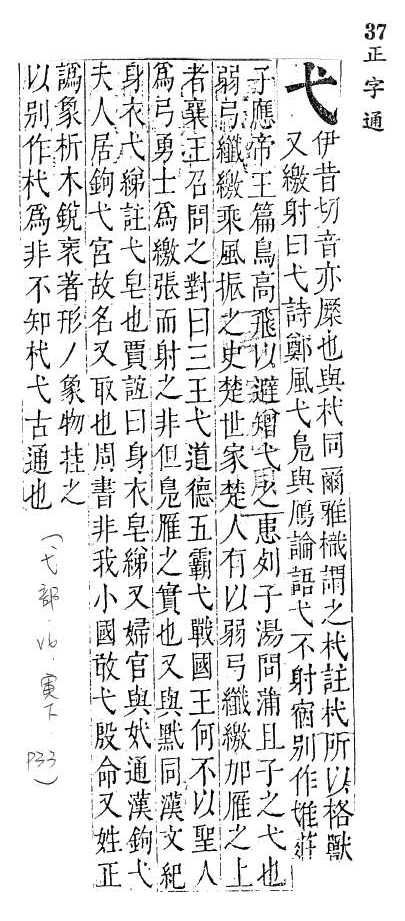 37
正字通
弋
伊昔切音亦橜也與杙同爾雅樴謂之杙註杙所以格獸
又繳射曰弋詩鄭風弋鳧與鴈論語弋不射宿別作隿莊
子應帝王篇鳥高飛以避矰弋之患列子湯問蒲且子之弋也
弱弓纖繳乘風振之史楚世家楚人有以弱弓纖繳加雁之上
者襄王召問之對曰三王弋道德五霸弋戰國王何不以聖人
爲弓勇士爲繳張而射之非但鳧雁之實也又與黓同漢文紀
身衣弋綈註弋皂也賈誼曰身衣皂綈又婦官與妷通漢鉤弋
夫人居鉤弋宮故名又取也周書非我小國敢弋殷命又姓正
譌象析木銳衺著形丿象物挂之
以別作杙爲非不知杙弋古通也
(弋部.v6.寅下 p33)